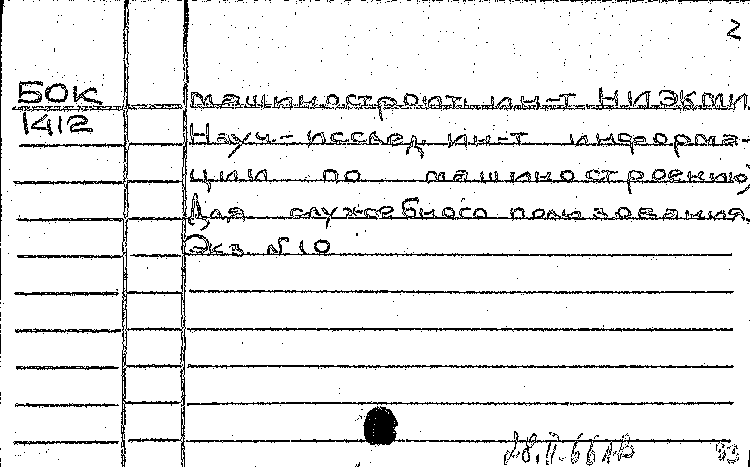 2
БОК
1412
машиностроит. ин-т НИЭКМИ.
Науч.-исслед. ин-т информа-
ции по машиностроению)
Для служебного пользования.
Экз. №10
28.II.66